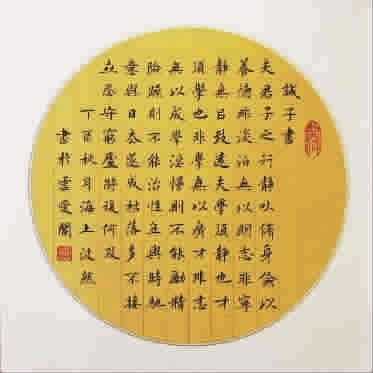 誡子書
夫君子之行靜以脩身儉以
養德非淡泊無以明志非寧
靜無以致遠夫學須靜也才
須學也非學無以廣才非志
無以成學淫慢則不能勵精
險躁則不能治性年與時馳
意與日去遂成枯落多不接
世悲守窮廬將復何及
丁酉秋月海上波然
書於雲愛閣